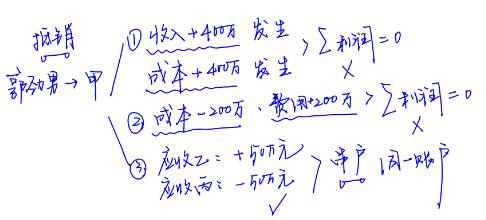 抵销
郭劲男→甲
① 收入+400万 发生
成本+400万 发生 > ∑利润=0
×
② 成本-200万、费用+200万 > ∑利润=0
×
③ 应收乙：+50万元
应收丙：-50万元 > 串户 同一账户
✓